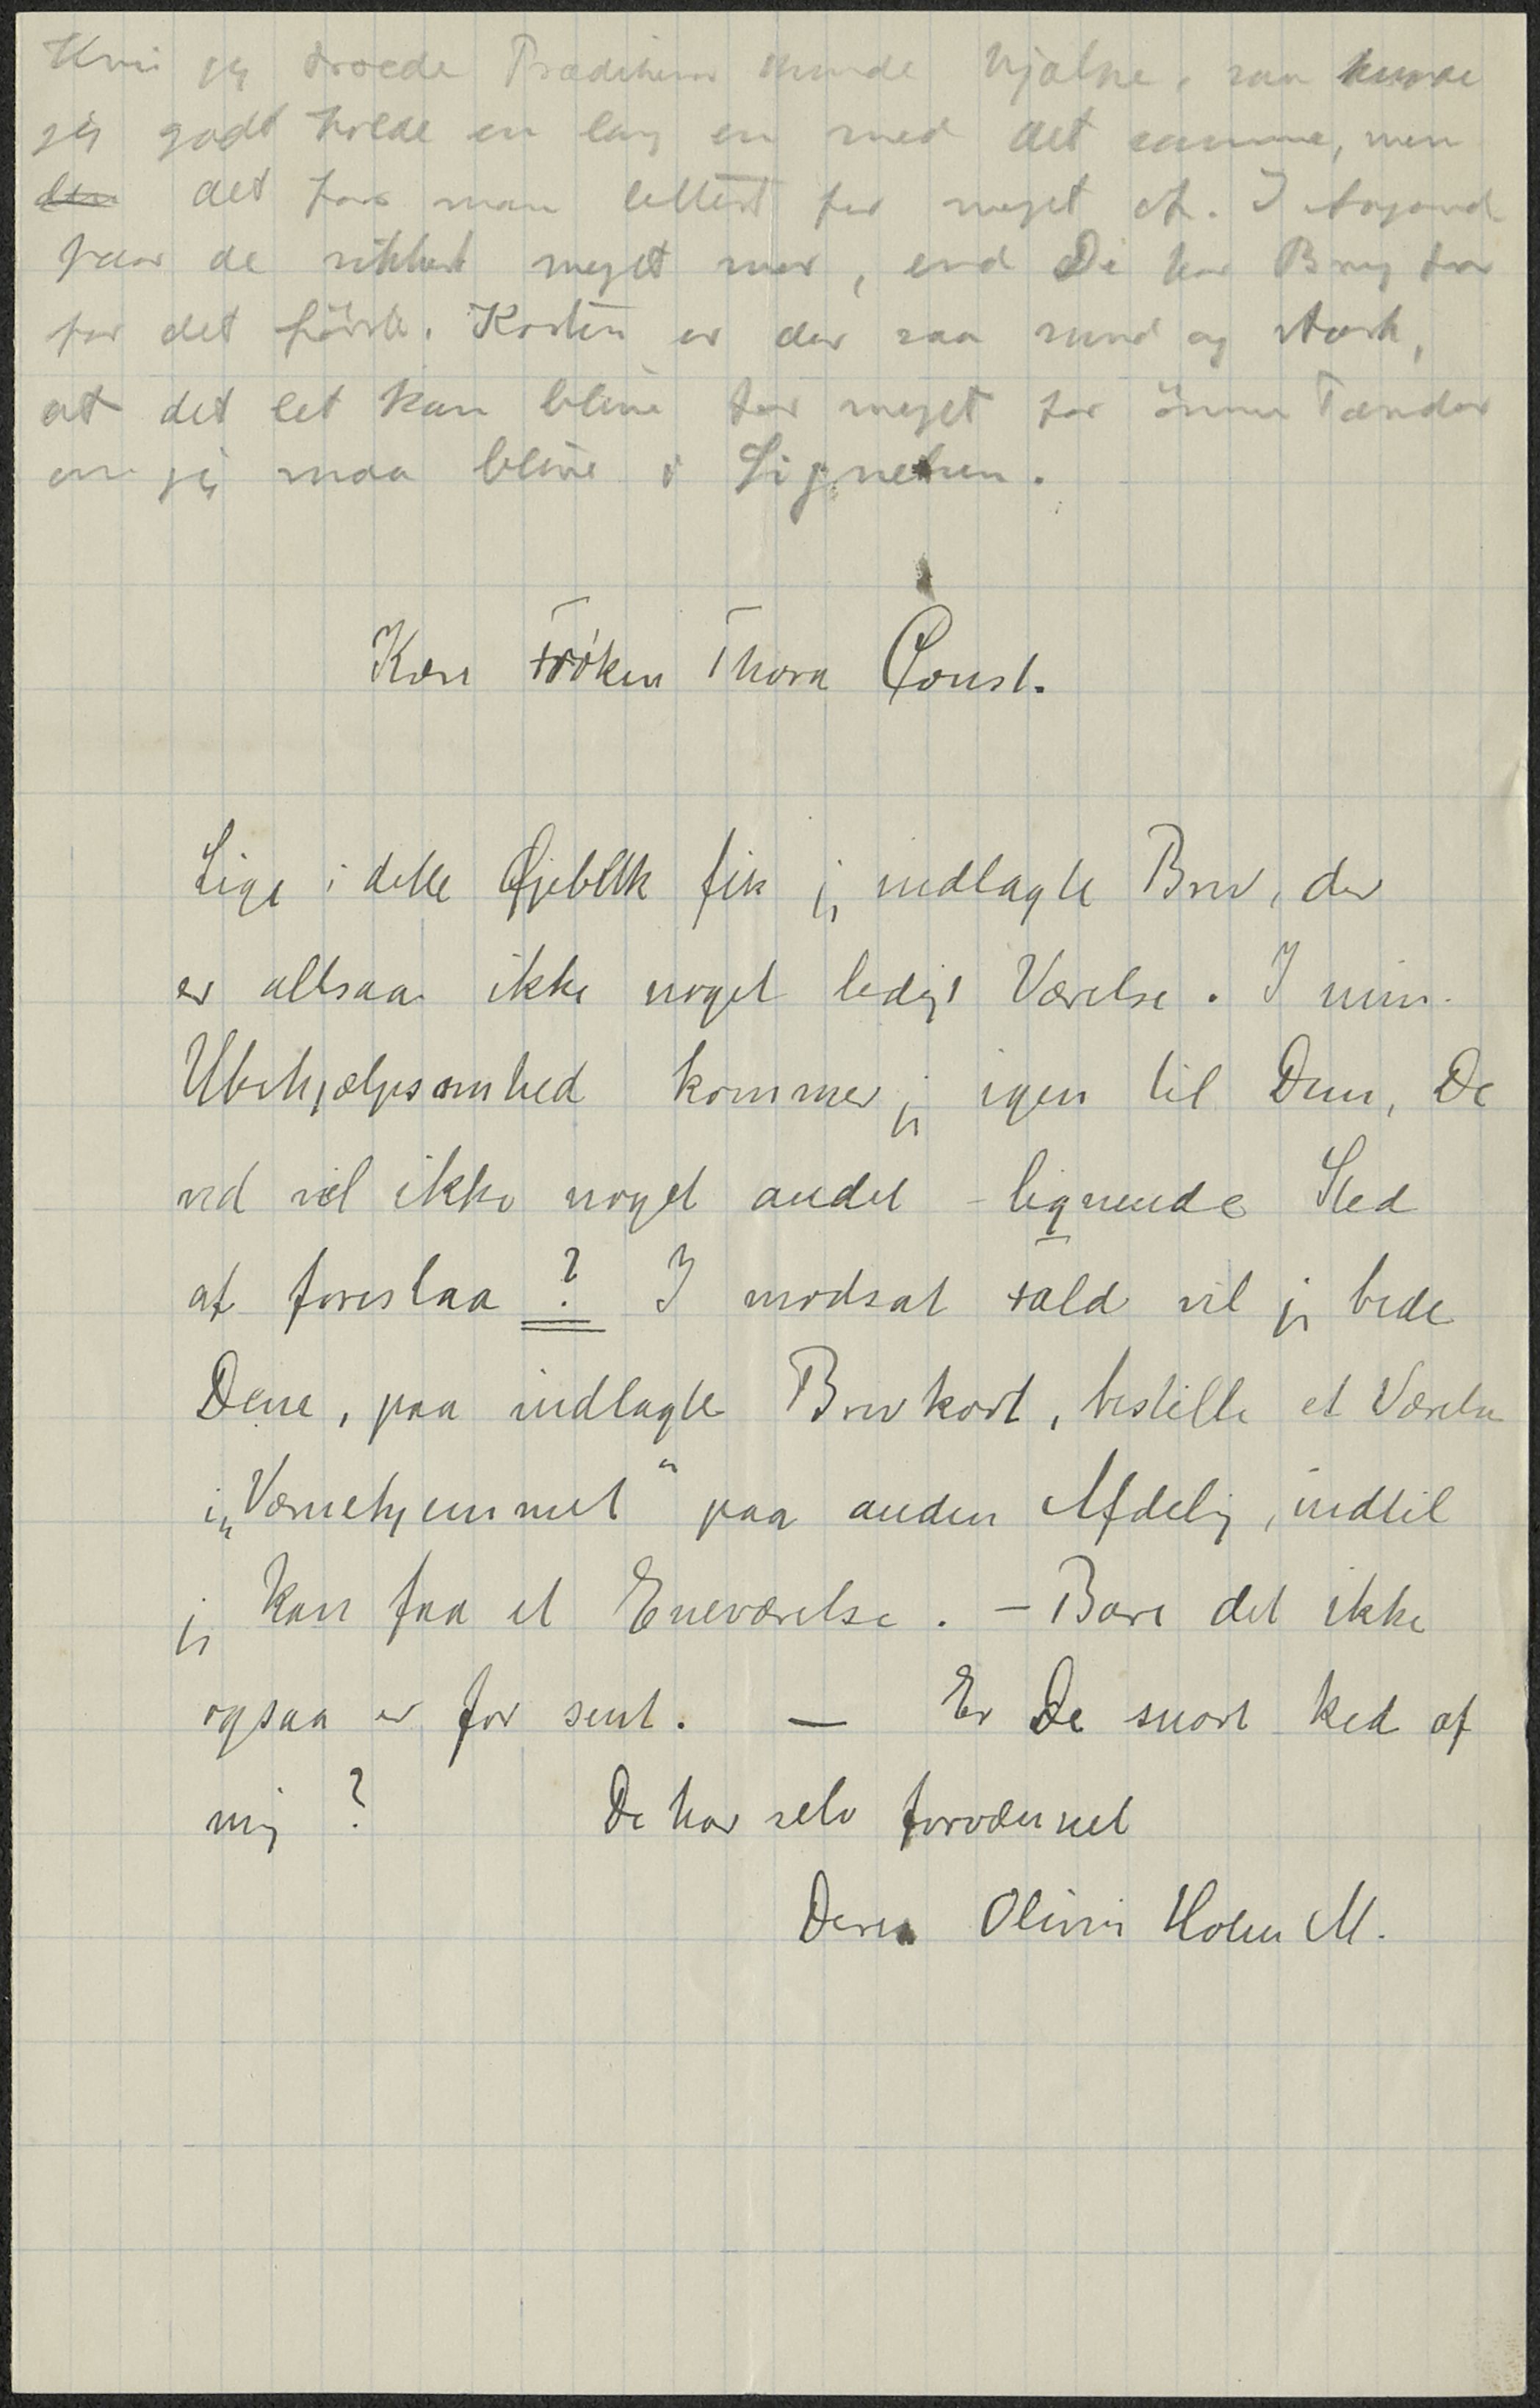 Hvis jeg troede Prædiken kunde hjælpe, saa kunde
jeg godt holde en lang en med det samme, men
den det faar man lettest for meget af. I
faar de sikkert meget mer, end De har Brug for
for det første. Kosten er der saa sund og stærk,
at det let kan blive for meget for ömme Tænder
om jeg maa blive i Lignelsen.
Kære Frøken Thora Daugaard.
Lige i dette Øjeblik fik jeg indlagte Brev, der
er altsaa ikke noget ledigt Værelse. I min
Ubehjælpsomhed kommer jeg igen til Dem, De
ved vel ikke noget andet - lignende Sted
at foreslaa ? I modsat Fald vil jeg bede
Dem, paa indlagte Brevkort, bestille et Værelse
i „Værnehjemmet" paa anden Afdeling, indtil
jeg kan faa et Eneværelse. - Bare det ikke
ogsaa er for sent. — Er De snart ked af
mig ? De har selv forvænnet
Deres Olivia Holm M.